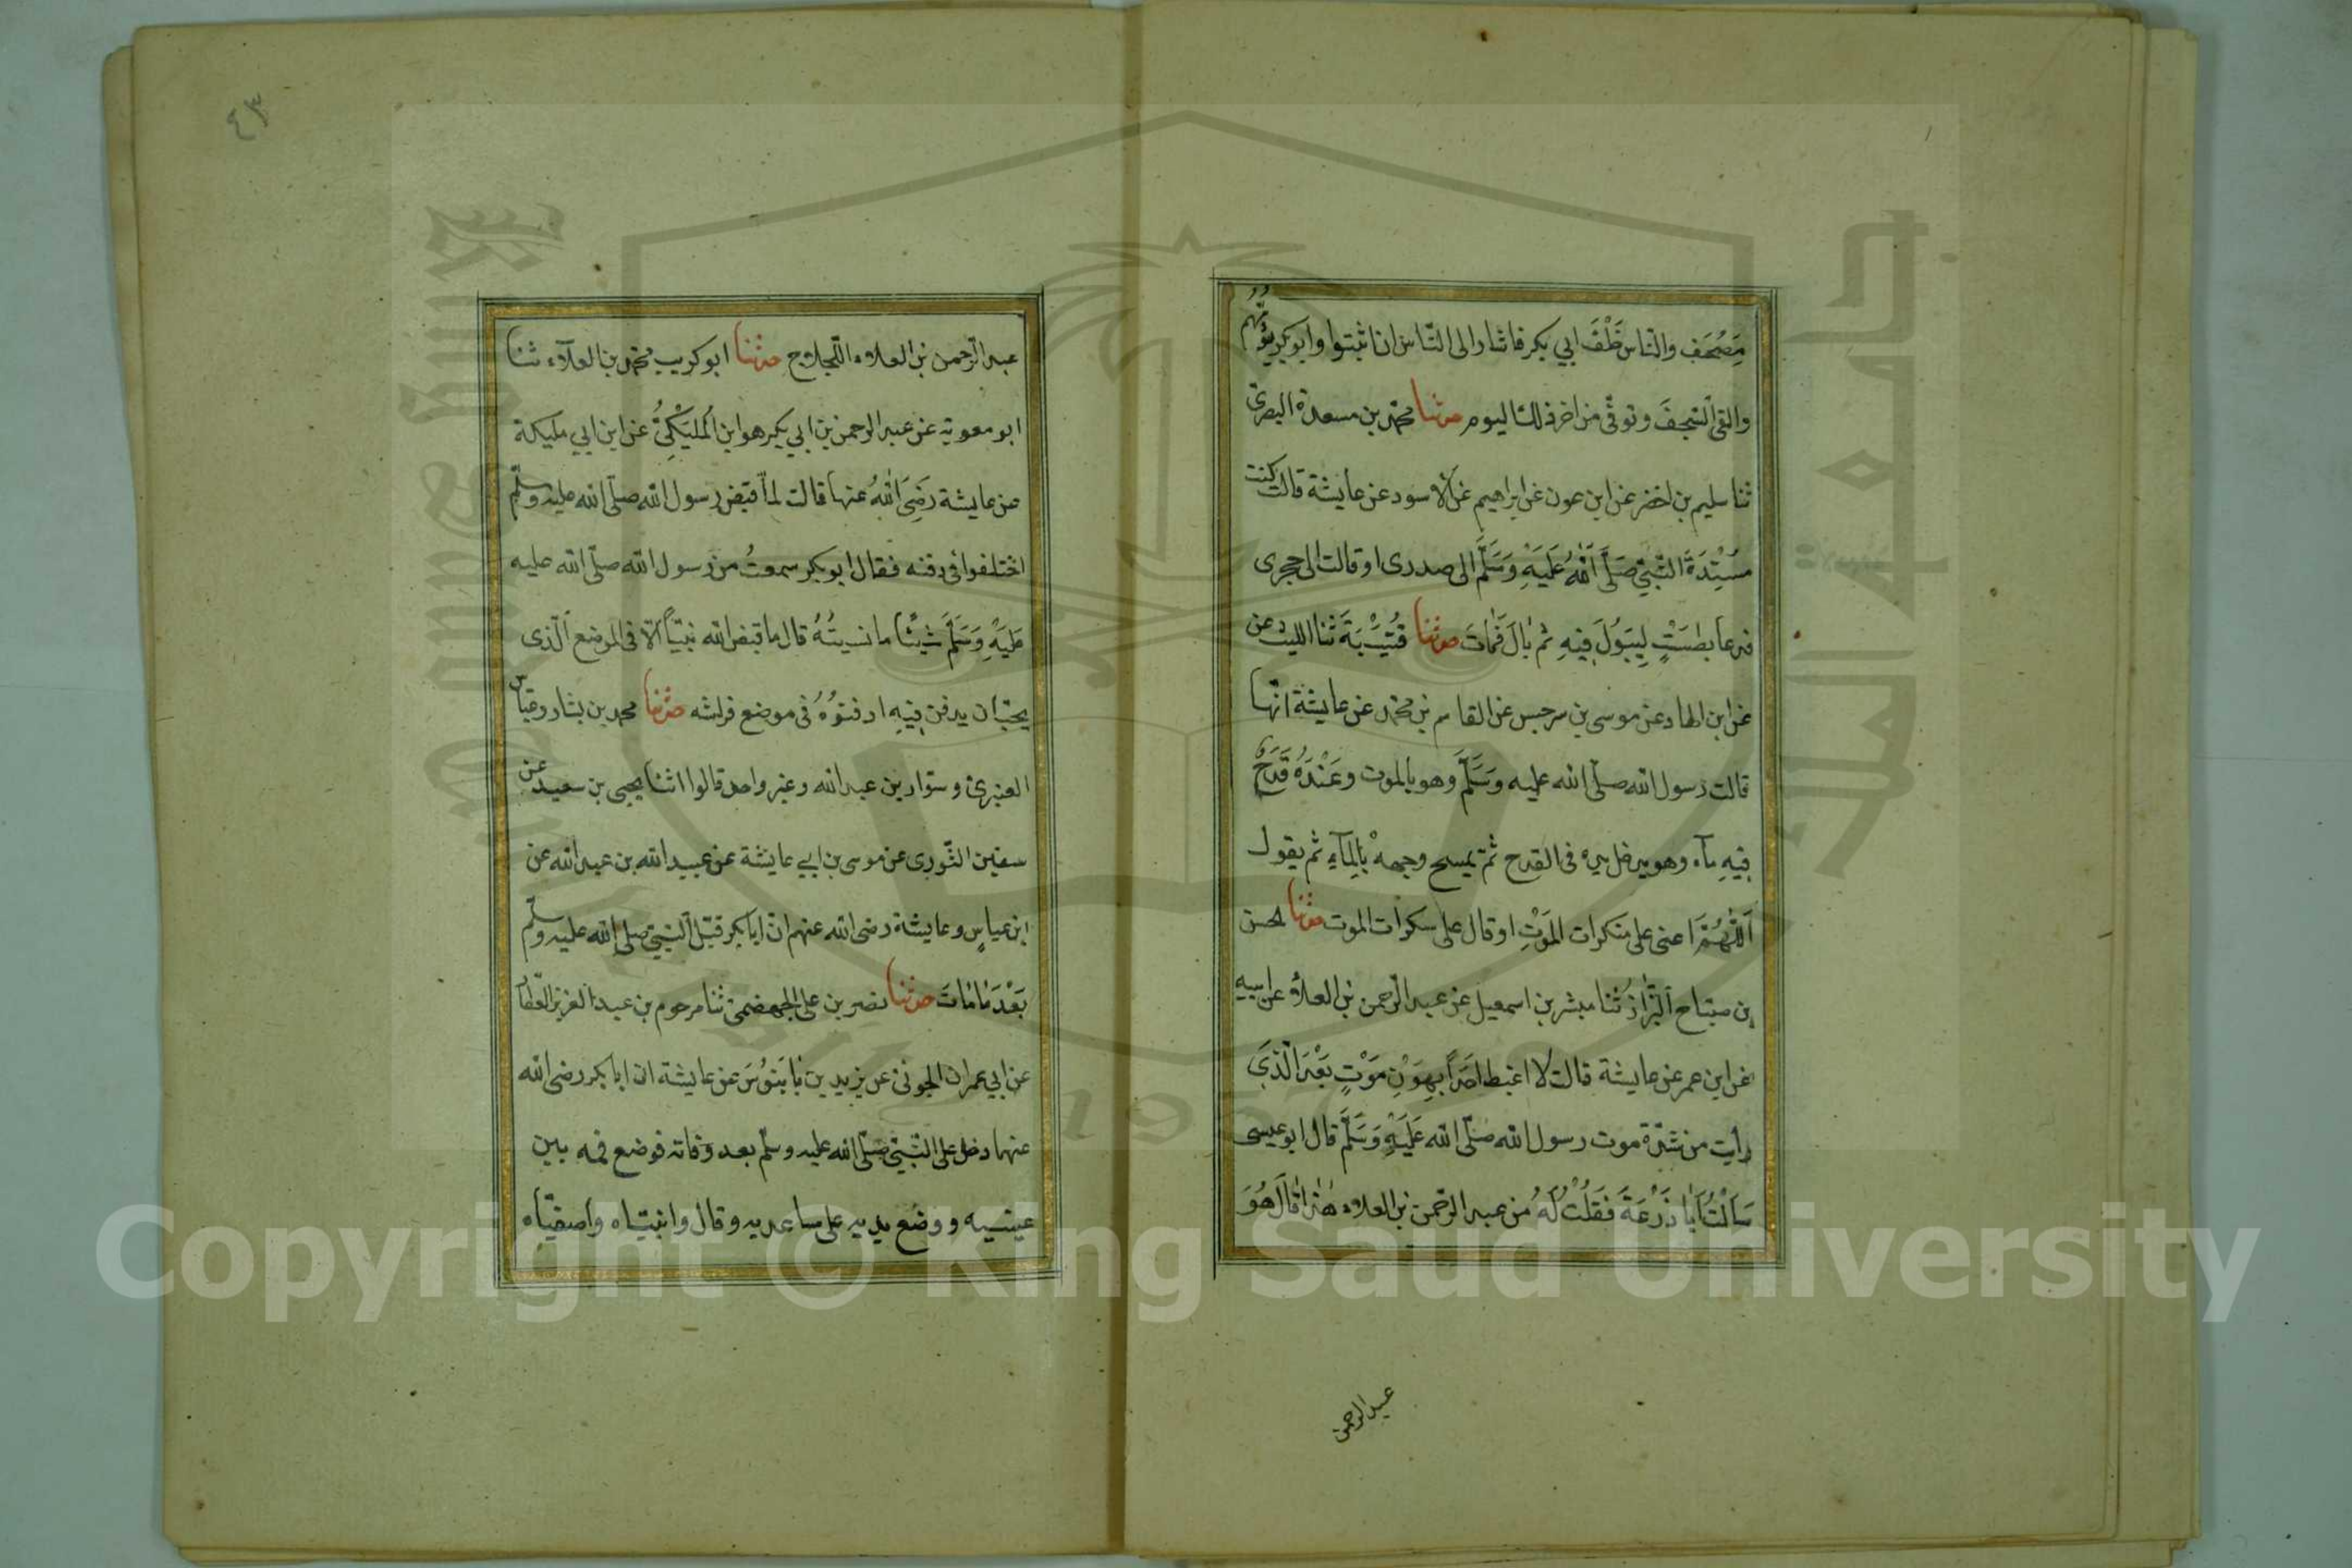 مصحف والناس خَلْفَ ابي بكر فاشار الى النّاس ان اثبتوا وابو بكر يؤمّهم
والقى السّجف وتوفّي من اخر ذلك اليوم حدثنا محمّد بن مسعدة البصرى
ثنا سليم بن اخضر عن ابن عون عن ابراهيم عن الاسود عن عايشة قالت كنت
مُسْنِدَةً النّبيّ صَلَّى اللّٰهُ عَلَيْهِ وَسَلَّمَ الى صدرى او قالت الى حجرى
فدعا بطَسْتٍ لِيَبُولَ فِيهِ ثم بَالَ فَمَاتَ حدثنا قُتَيْبَةَ ثنا الليث عن
عن ابن الهاد عن موسى بن سرجس عن القاسم بن محمّد عن عايشة انّها
قالت رسول الله صلّى الله عليه وَسَلَّمَ وهو بالموت وعَنْدَهُ قَدَحٌ
فِيهِ مآء وهو يدخل يده فى القدح ثمّ يمسح وجههْ بِالمآءِ ثم يقول
اَللّٰهُمَّ اعنى على منكرات المَوْتِ او قال على سكرات الموت حدثنا الحسن
بن صبّاح البزّاز ثنا مبشر بن اسمعيل عن عبد الرّحمن بن العلاء عن ابيه
عن ابن عمر عن عايشة قالت لا اغبط احَدًا بِهَوْنِ مَوْتٍ بَعْدَ الّذِي
رأيت من شدّة موت رسول الله صلّى الله عَلَيْهِ وَسَلَّمَ قال ابو عيسى
سَاَلْتُ اَبَا زَرْعَةَ فَقُلْتُ لَهُ من عبد الرّحمن بن العلاء هٰذا قَالَ هُوَ
عبد الرحمن
٤٣
عبد الرّحمن بن العلاء اللّجلاج حدثنا ابو كريب محمّد بن العلآء ثنا
ابو معوية عن عبد الرحمن بن ابي بكر هو ابن المُلَيْكِيُّ عن ابن ابي مليكة
عن عايشة رَضِىَ اللّٰهُ عنها قالت لمّا قبض رسول الله صلّى الله عليه وسلّم
اختلفوا فى دفنه فقال ابو بكر سمعتُ من رسول الله صلّى الله عليه
عَلَيْهِ وَسَلَّمَ شَيْئًا ما نسيتُهُ قال ما قبض الله نبيّاً الّا فى الموضع الّذى
يحبّ ان يدفن فِيهِ ادفنوُهُ فى موضع فراشه حدثنا محمد بن بشار وعبّاس
العنبرىّ وسوّار بن عبد الله وغير واحد قالوا اثنا يحيى بن سعيد عن
سفين الثّورى عن موسى بن ابي عايشة عن عبيد الله بن عبد الله عن
ابن عباسٍ وعايشة رضى الله عنهم انّ ابا بكر قبّل النّبيّ صلى الله عليه وسلّم
بَعْدَ مَا مَاتَ حدثنا نصر بن على الجهضمىّ ثنا مرحوم بن عبد العزيز العطّار
عن ابي عمران الجونىّ عن يزيد بن بَابَنُوسَ عن عايشة ان ابا بكر رضى الله
عنها دخل على النّبيّ صلّى الله عليه وسلّم بعد وفاته فوضع فمه بين
عينيه ووضع يديه على ساعديه وقال وانبيّاه واصفيّاه
Copyright © King Saud University
1957